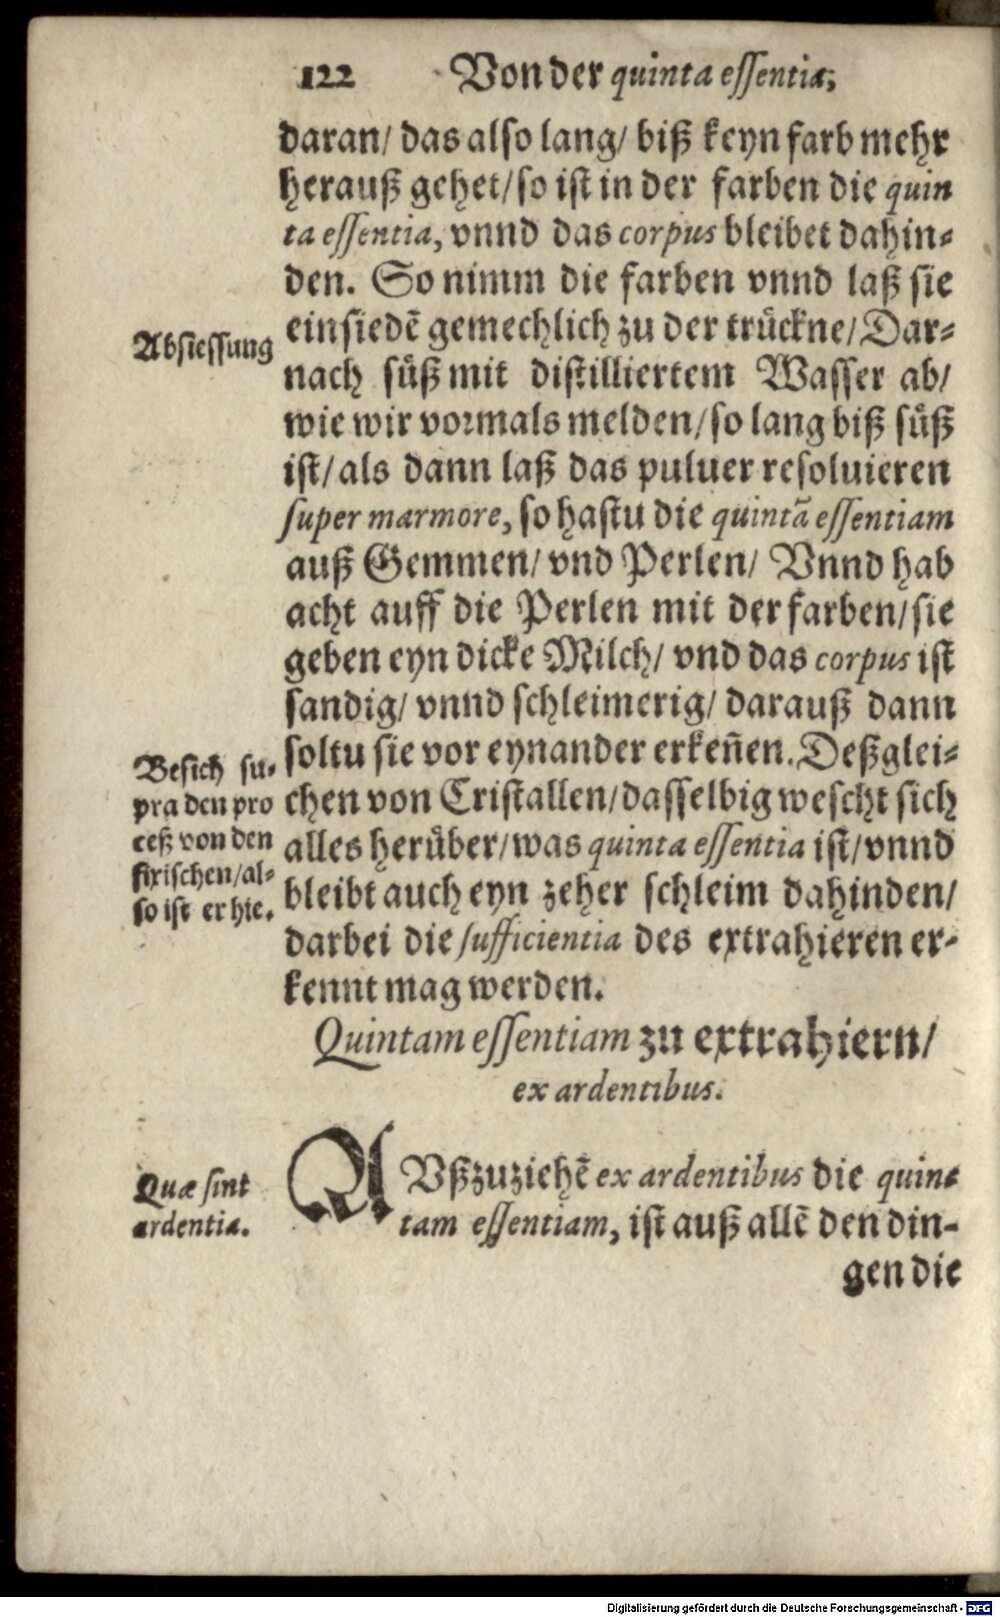 122 Von der quinta essentia,
daran/ das also lang/ biß keyn farb mehr
herauß gehet/ so ist in der farben die quin
ta essentia, vnnd das corpus bleibet dahin⸗
den. So nimm die farben vnnd laß sie
einsiedẽ gemechlich zu der truͤckne/ Dar⸗
Absiessung
nach suͤß mit distilliertem Wasser ab/
wie wir vormals melden/ so lang biß suͤß
ist/ als dann laß das puluer resoluieren
super marmore, so hastu die quintã essentiam
auß Gemmen/ vnd Perlen/ Vnnd hab
acht auff die Perlen mit der farben/ sie
geben eyn dicke Milch/ vnd das corpus ist
sandig/ vnnd schleimerig/ darauß dann
soltu sie vor eynander erkeñen. Deßglei⸗
Besich su⸗
pra den pro
ceß von den
fixischen/ al⸗
so ist er hie.
chen von Cristallen/ dasselbig wescht sich
alles heruͤber/ was quinta essentia ist/ vnnd
bleibt auch eyn zeher schleim dahinden/
darbei die sufficientia des extrahieren er⸗
kennt mag werden.
Quintam essentiam zu extrahiern/
ex ardentibus.
Quæ sint
ardentia.
AVßzuziehẽ ex ardentibus die quin⸗
tam essentiam, ist auß allẽ den din⸗
gen die
Digitalisierung gefördert durch die Deutsche Forschungsgemeinschaft - DFG